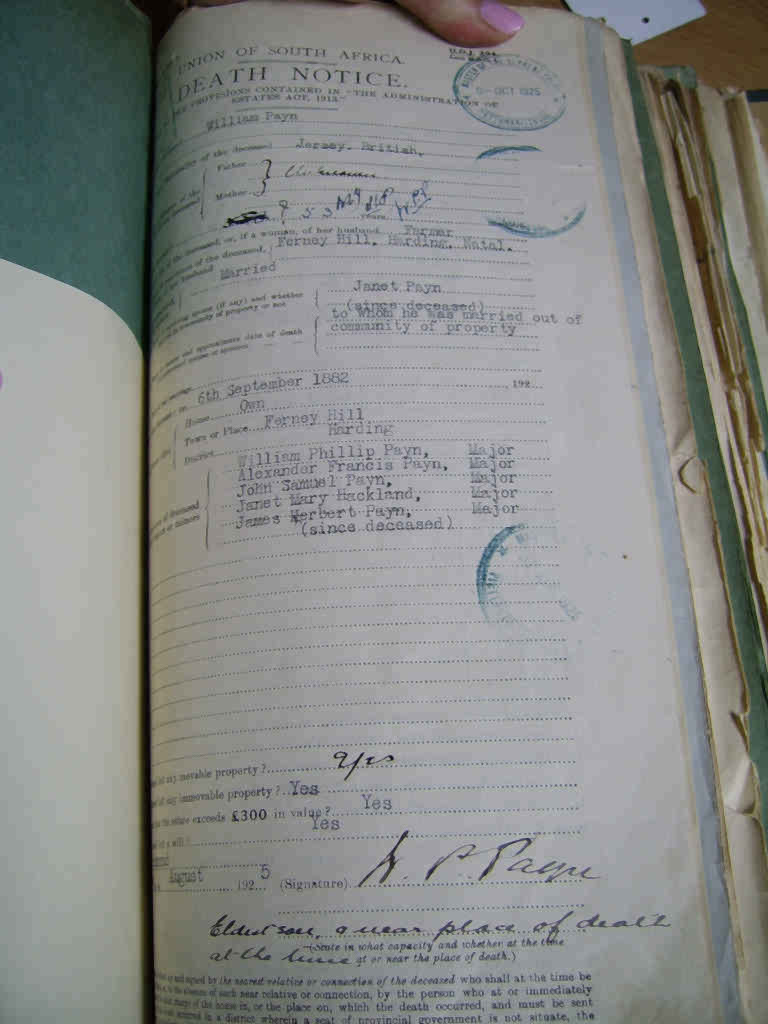 UNION OF SOUTH AFRICA.
DEATH NOTICE.
PROVISIONS CONTAINED IN "THE ADMINISTRATION OF
ESTATES ACT, 1913."
William Payn
of the deceased Jersey. British.
Father
Unknown
Mother
? 53 years
deceased, or, if a woman, of her husband Farmer
of the deceased, Ferney Hill, Harding, Natal.
Married
spouse (if any) and whether Janet Payn
of property or not (since deceased)
to whom he was married out of
and approximate date of death community of property
6th September 1882 192
Home Own
Town or Place Ferney Hill
District Harding
William Phillip Payn, Major
Alexander Francis Payn, Major
John Samuel Payn, Major
Janet Mary Hackland, Major
James Herbert Payn, Major
(since deceased)
OCT 1925
left any movable property? Yes
left any immovable property? Yes
the estate exceeds £300 in value? Yes
left a will? Yes
August 1925 (Signature) W. P. Payn
Eldest son, & near place of death
(State in what capacity and whether at the time
at the time at or near the place of death.)
up and signed by the nearest relative or connection of the deceased who shall at the time be
the absence of such near relative or connection, by the person who at or immediately
charge of the house in, or the place on, which the death occurred, and must be sent
occurred in a district wherein a seat of provincial government is not situate, the